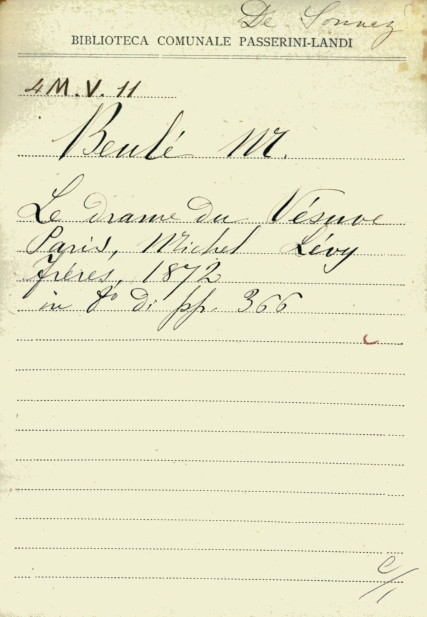 De Sonnez
BIBLIOTECA COMUNALE PASSERINI-LANDI
4 M. V. 11
Beulé M.
Le drame du Vésuve
Paris, Michel Lévy
frères, 1872
in 8º di pp. 366
C/1